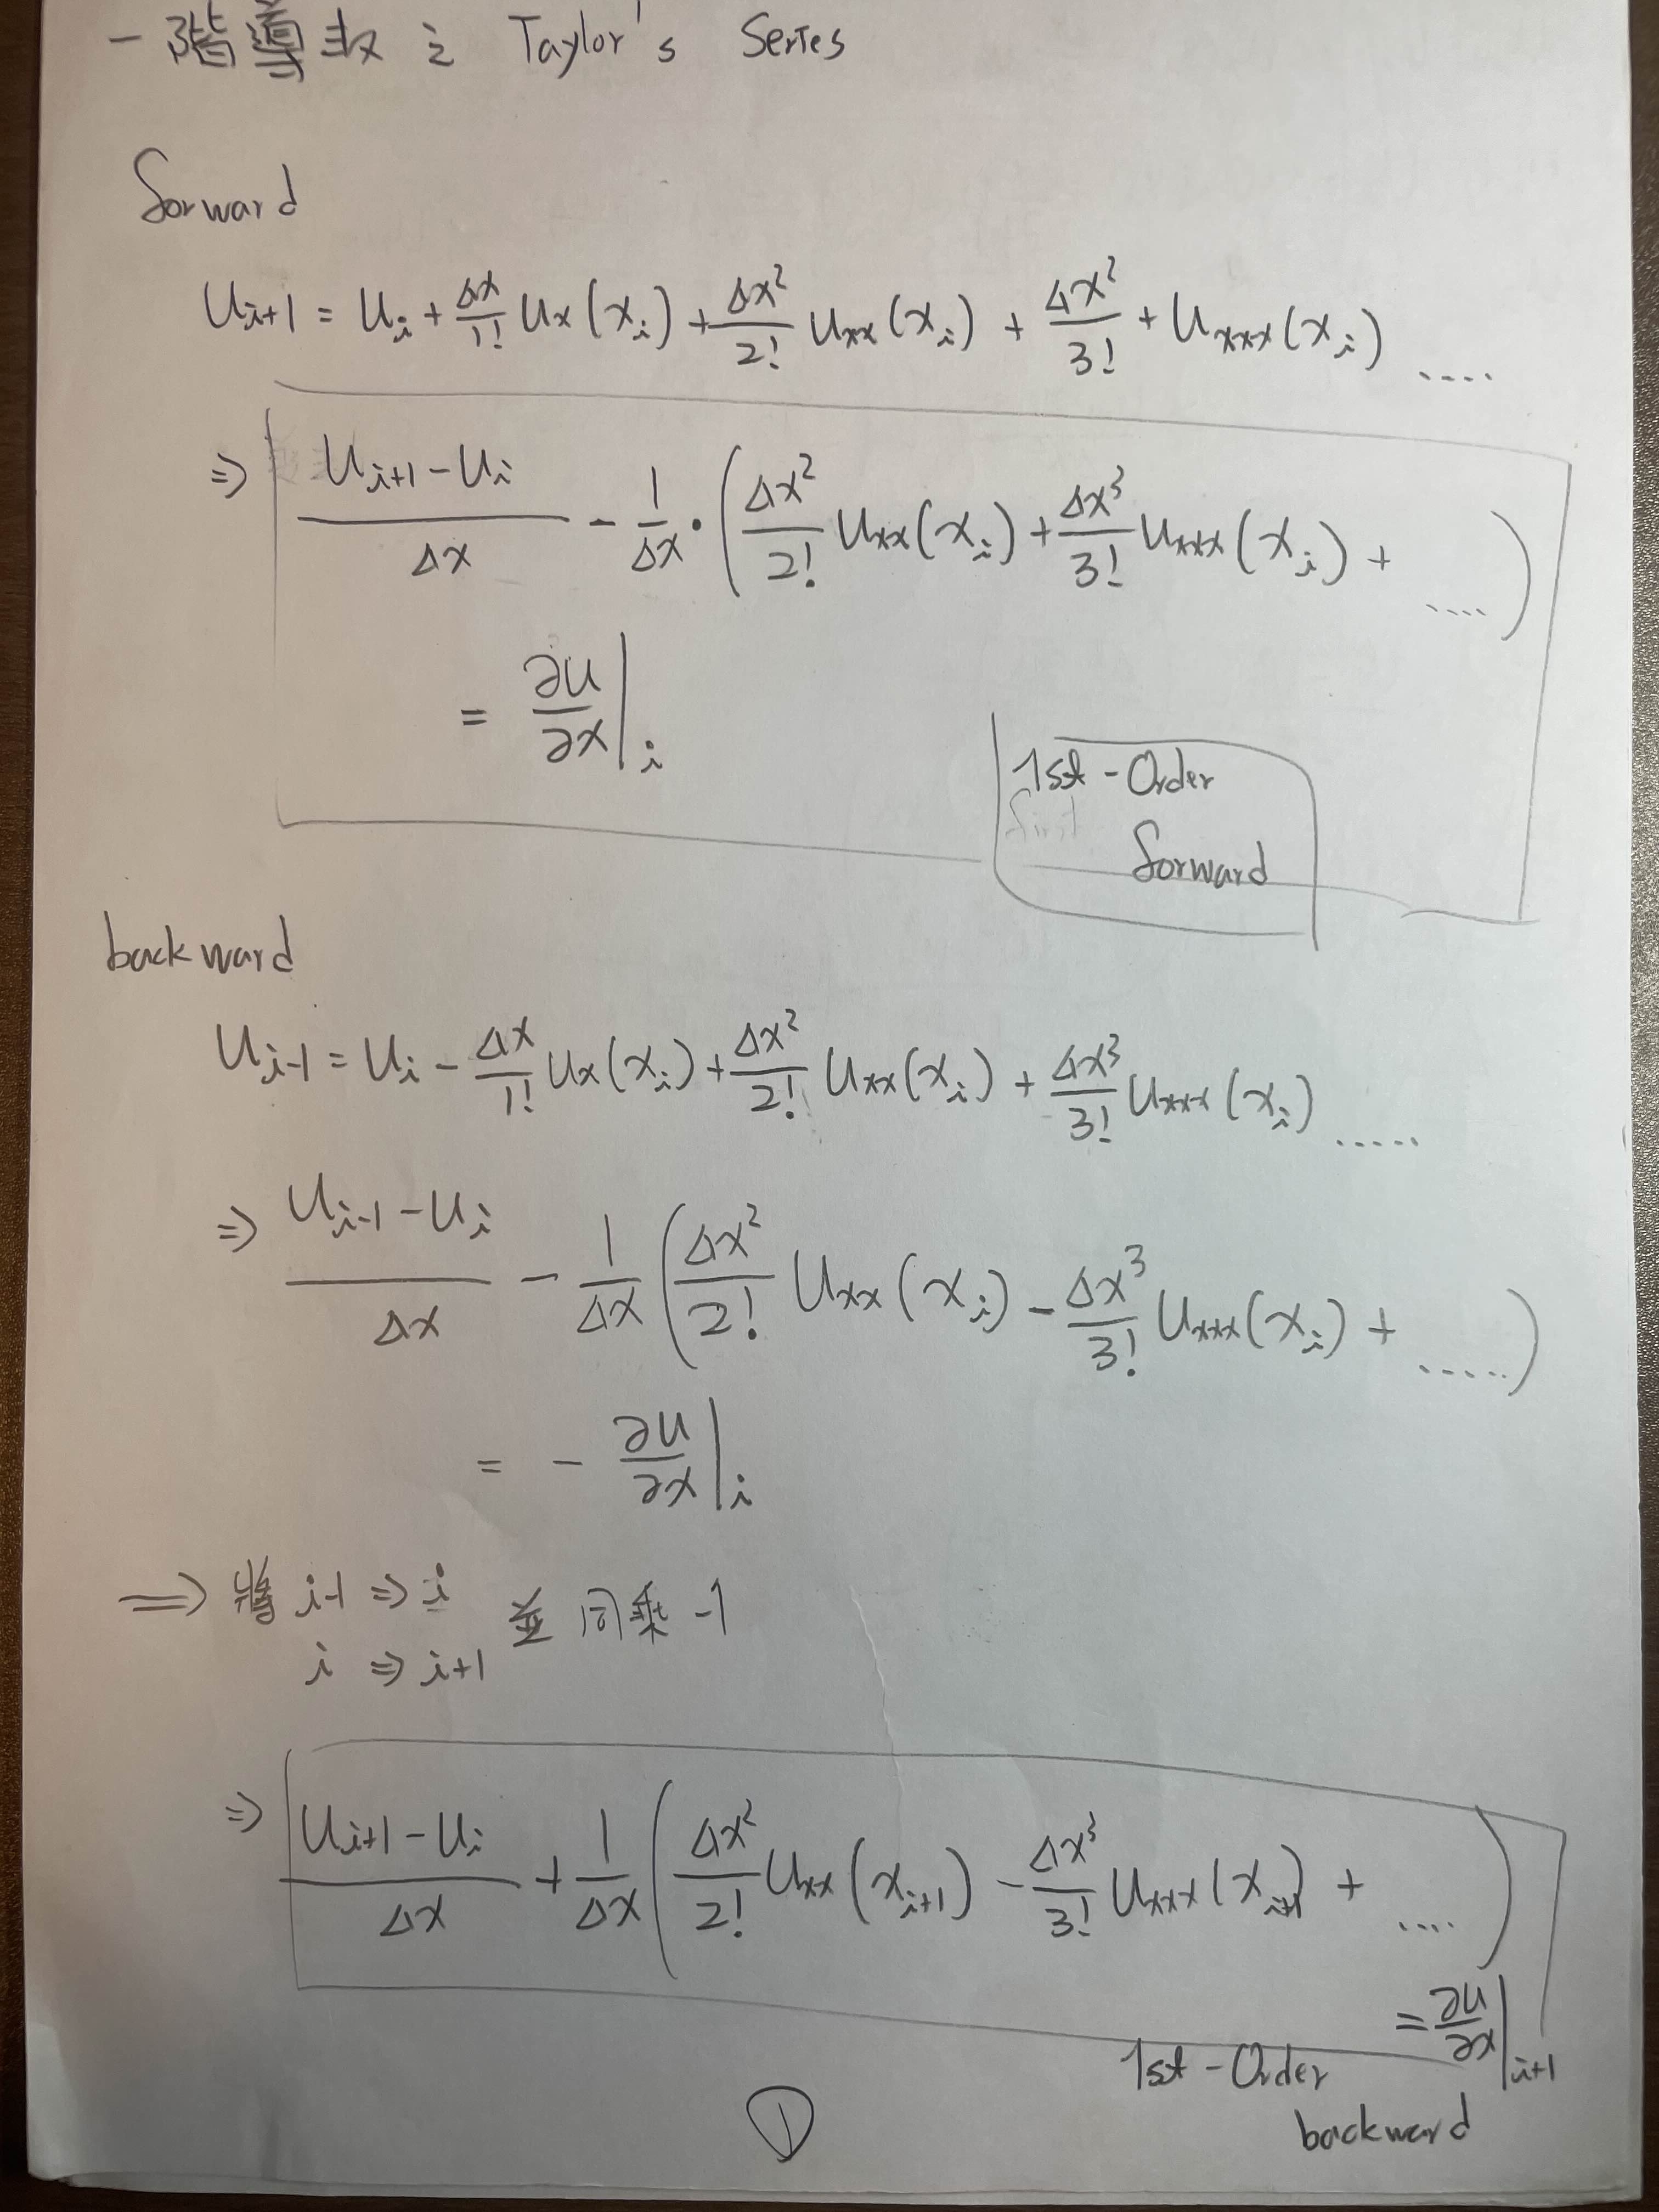 一階導数之 Taylor's Series
forward
U_{i+1} = U_i + \frac{Δx}{1!} U_x(x_i) + \frac{Δx^2}{2!} U_{xx}(x_i) + \frac{Δx^2}{3!} + U_{xxx}(x_i) ....
⇒ \frac{U_{i+1} - U_i}{Δx} - \frac{1}{Δx} · (\frac{Δx^2}{2!} U_{xx}(x_i) + \frac{Δx^3}{3!} U_{xxx}(x_i) + ....)
= \frac{∂u}{∂x}|_i
1st-Order
forward
backward
U_{i-1} = U_i - \frac{Δx}{1!} U_x(x_i) + \frac{Δx^2}{2!} U_{xx}(x_i) + \frac{Δx^3}{3!} U_{xxx}(x_i) .....
⇒ \frac{U_{i-1} - U_i}{Δx} - \frac{1}{Δx} (\frac{Δx^2}{2!} U_{xx}(x_i) - \frac{Δx^3}{3!} U_{xxx}(x_i) + .....)
= - \frac{∂u}{∂x}|_i
⇒ 將 i-1 ⇒ i 並同乘 -1
i ⇒ i+1
⇒ \frac{U_{i+1} - U_i}{Δx} + \frac{1}{Δx} (\frac{Δx^2}{2!} U_{xx}(x_{i+1}) - \frac{Δx^3}{3!} U_{xxx}(x_{i+1}) + ....)
= \frac{∂u}{∂x}|_{i+1}
1st-Order
backward
①